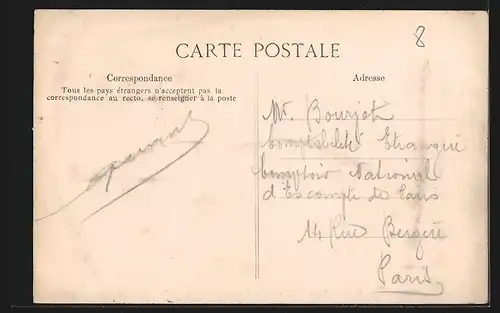 8
CARTE POSTALE
Correspondance
Tous les pays étrangers n'acceptent pas la
correspondance au recto, se renseigner à la poste
Adresse
Mr. Bourjet
Comptabilité Etrangère
Comptoir National
d'Escompte de Paris
14 Rue Bergère
Paris